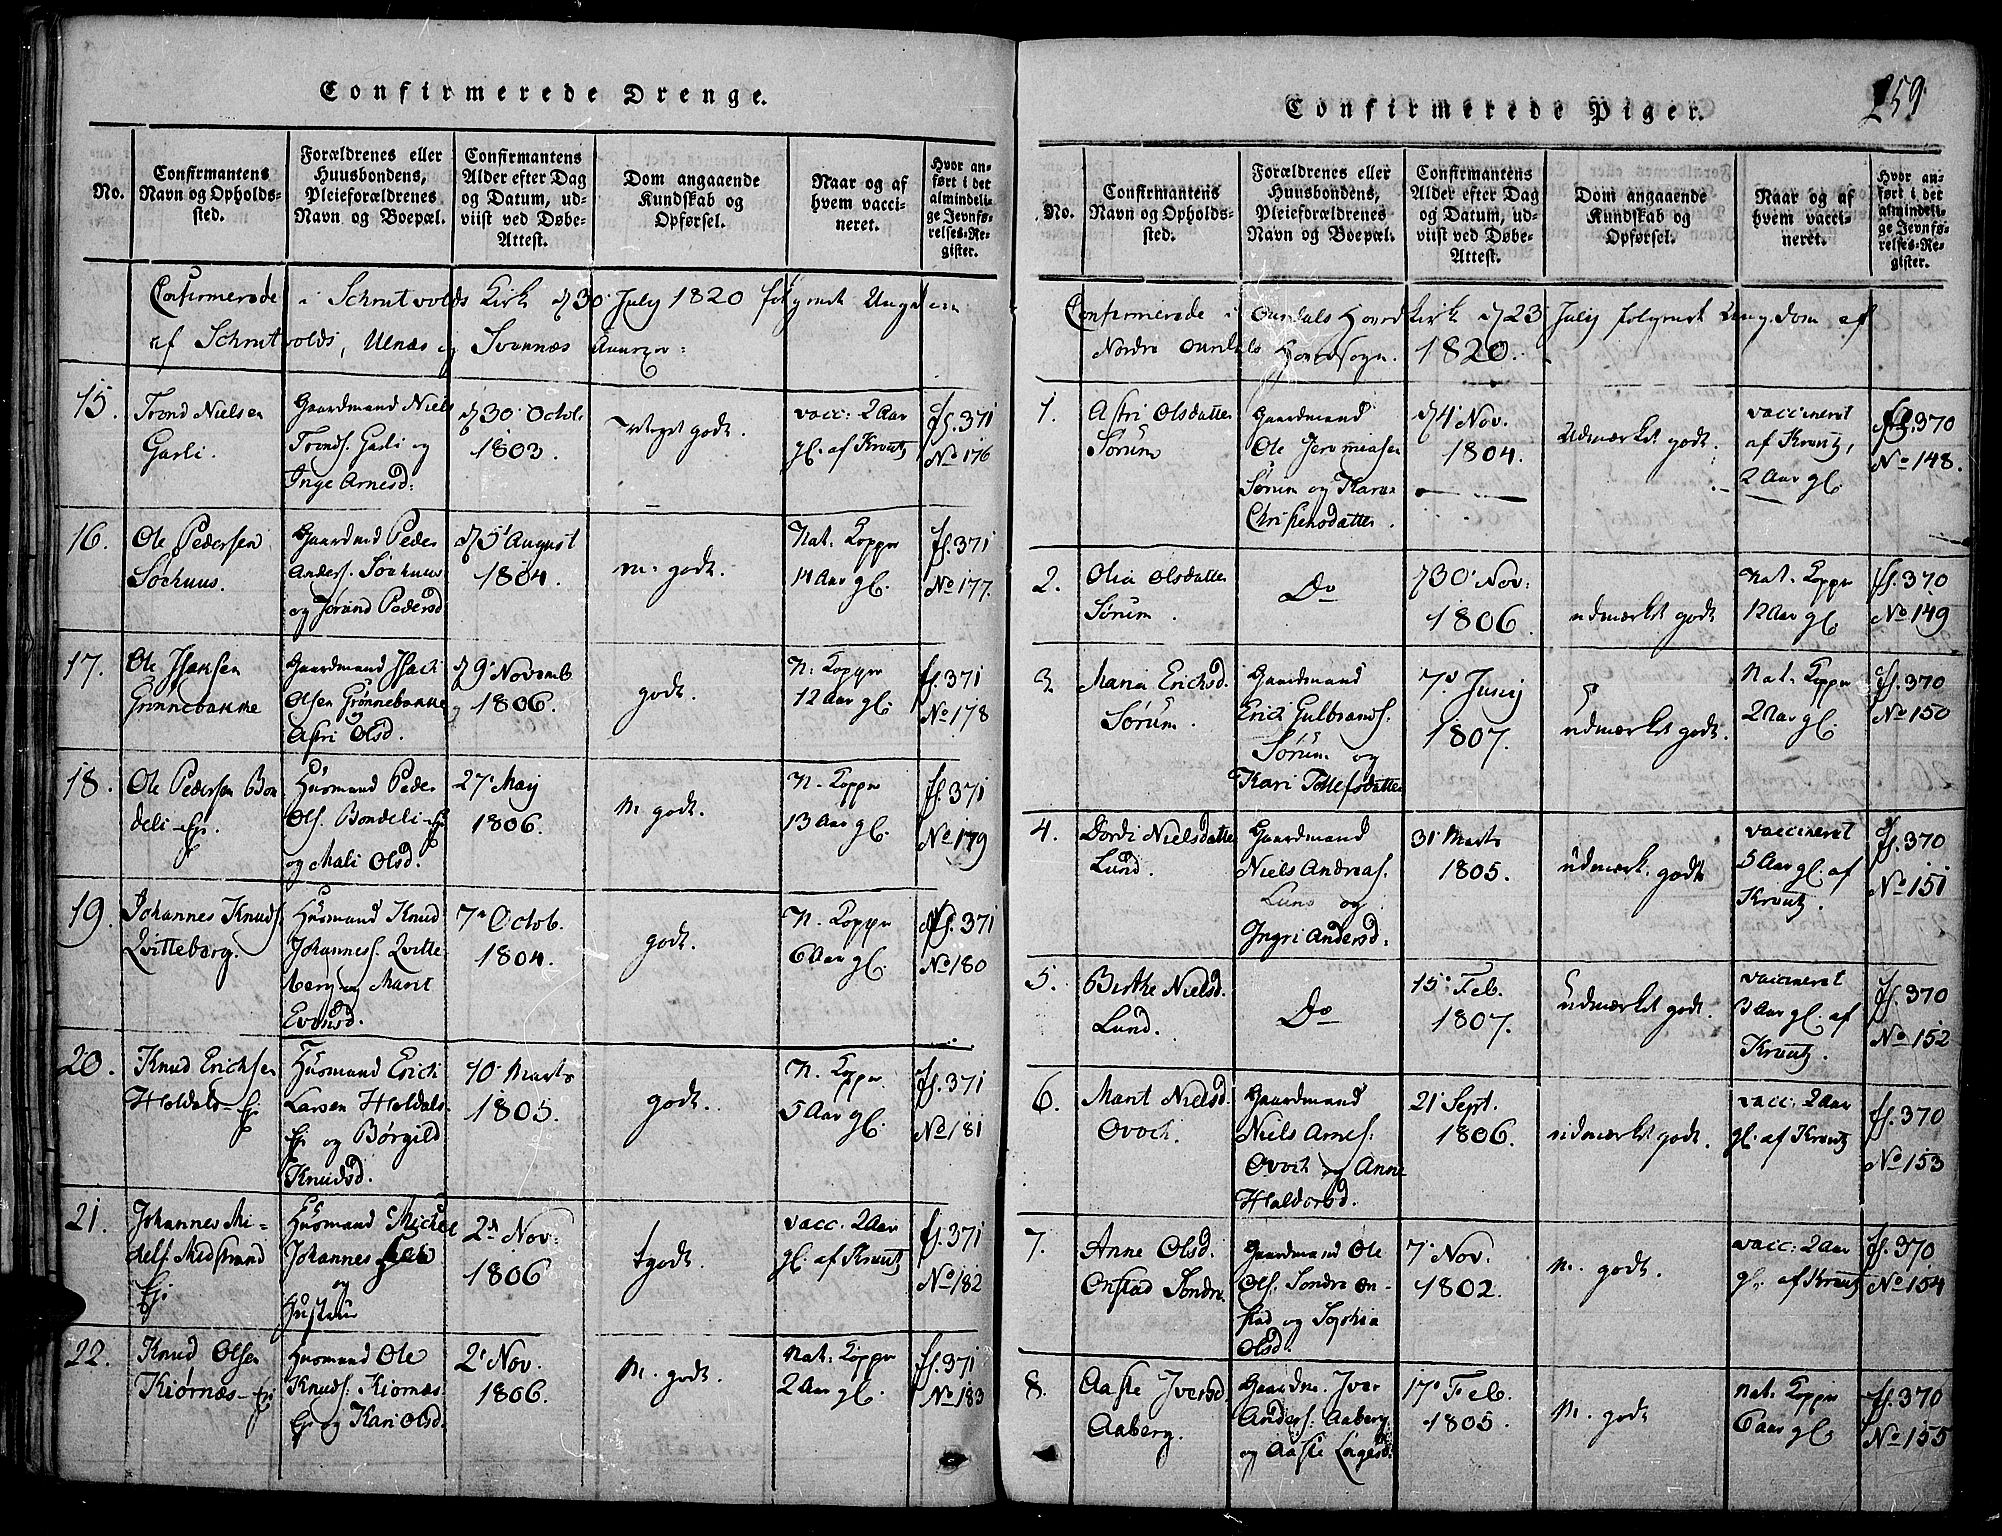 Confirmerede Drenge.
No.
Confirmantens
Navn og Opholds-
sted.
Forældrenes eller
Huusbondens,
Pleieforældrenes
Navn og Boepæl.
Confirmantens
Alder efter Dag
og Datum, ud-
viist ved Døbe-
Attest.
Dom angaaende
Kundskab og
Opførsel.
Naar og af
hvem vacci-
neret.
Hvor an-
ført i det
almindeli-
ge Jevnfø-
relses-Re-
gister.
Confirmerede i Schrutvolds Kirk d 30 July 1820 følgende
af Schrutvolds, Ulnæs og Svennæs
15.
Trond Nielsen
Garli.
Gaardmand Niels
Tronds. Garli og
Inge Arnesd:
d 30 Octob.
1803.
godt.
vacc: 2 Aar
gl. af Kreutz
fs. 371
No 176
16.
Ole Pedersen
Søehuus.
Gaardmd Peder
Anders. Søehuus
og Jørand Pedersd
d 5 August
1804.
m. godt.
Nat. Kopper
14 Aar gl.
fs. 371
No 177.
17.
Ole Isaksen
Grønnebakke
Gaardmand Isach
Olsen Grønnebakke
og
Astri Olsd.
d 9 Novemb
1806.
godt.
N. Kopper
12 Aar gl.
fs. 371
No 178
18.
Ole Pedersen Bon
deli-Ej.
Husmand Peder
Ols. Bondeli-Ej
og Mali Olsd.
27 Maij
1806.
m. godt.
N. Kopper
13 Aar gl.
fs. 371
No 179
19.
Johannes Knuds.
Qvitteberg.
Husmand Knud
Johanness. Qvitte-
berg og Marit
Evensd.
7 Octob.
1804.
godt.
N. Kopper
6 Aar gl.
fs. 371
No 180
20.
Knud Erichsen
Holdals-Ej
Husmand Erich
Larsen Holdals-
Ej og Børgild
Knudsd.
10 Marts
1805.
godt.
N. Kopper
5 Aar gl.
fs. 371
No 181
21.
Johannes Mi-
kels. Midstrand
Ej.
Husmand Michel
Johannes
og
2d Nov.
1806
tgodt.
vacc: 2 Aar
gl. af Kreutz
fs. 371
No 182
22.
Knud Olsen
Kiørnæs-Ej
Husmand Ole
Knuds. Kiørnæs
Ej og Kari Olsd.
2 Nov.
1806.
m. godt.
Nat. Kopper
2 Aar gl.
fs. 371
No 183
259
Confirmerede Piger.
No.
Confirmantens
Navn og Opholds-
sted.
Forældrenes eller
Huusbondens,
Pleieforældrenes
Navn og Boepæl.
Confirmantens
Alder efter Dag
og Datum, ud-
viist ved Døbe-
Attest.
Dom angaaende
Kundskab og
Opførsel.
Naar og af
hvem vacci-
neret.
Hvor an-
ført i det
almindeli-
ge Jevnfø-
relses-Re-
gister.
Confirmerede i Ourdals Hoved Kirk d 23 July følgende Ungdom af
Nordre Ourdals Hovedsogn. 1820.
1.
Astri Olsdatter
Sørum
Gaardmand
Ole Jeremiasen
Sørum og Karen
Christensdatter.
d 4 Nov.
1804.
Udmærket godt.
vaccineret
af Kreutz,
2 Aar gl.
fs. 370
No 148.
2.
Olia Olsdatter
Sørum.
Do
d 30 Nov:
1806.
udmærket godt
Nat. Kopper
12 Aar gl.
fs. 370
No 149
3.
Maria Ericksd.
Sørum.
Gaardmand
Erick Gulbrands.
Sørum og
Kari Tollefsdatter
7d Junij
1807.
udmærket godt.
Nat. Kopper
2 Aar gl.
fs. 370
No 150
4.
Dordi Nielsdatter
Lund.
Gaardmand
Niels Andreas.
Lund og
Ingri Andersd.
31 Marts
1805.
udmærk. godt
vaccineret
5 Aar gl. af
Kreutz.
fs. 370
No 151
5.
Birthe Nielsd.
Lund.
Do
15 Feb.
1807.
Udmærket godt.
vaccineret
3 Aar gl. af
Kreutz.
fs. 370
No 152
6.
Marit Nielsd.
Qvoch.
Gaardmand
Niels Arnes.
Qvoch og Anne
Haldorsd.
21 Sept.
1806.
udmærket godt.
vacc: 2 Aar
gl. af Kreutz
fs. 370
No 153
7.
Anne Olsd.
Onstad Søndre
Gaardmand Ole
Ols. Søndre On-
stad og Sophia
Olsd.
7 Nov.
1802.
m. godt.
vacc: 2 Aar
gl. af Kreutz
fs. 370
No 154
8.
Aaste Iversd
Aaberg.
Gaardm. Iver
Anders. Aaberg
og Aaste
17 Feb.
1805.
m. godt
Nat. Kopper
6 Aar gl.
fs. 370
No 155